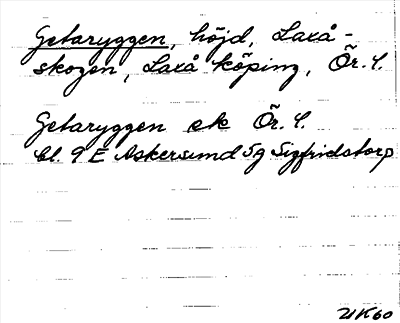 Getaryggen, höjd, Laxå-
skogen, Laxå köping, Ör. l.
Getaryggen ek Ör. l.
bl. 9 E Askersund 5g Sigfridstorp
UK60